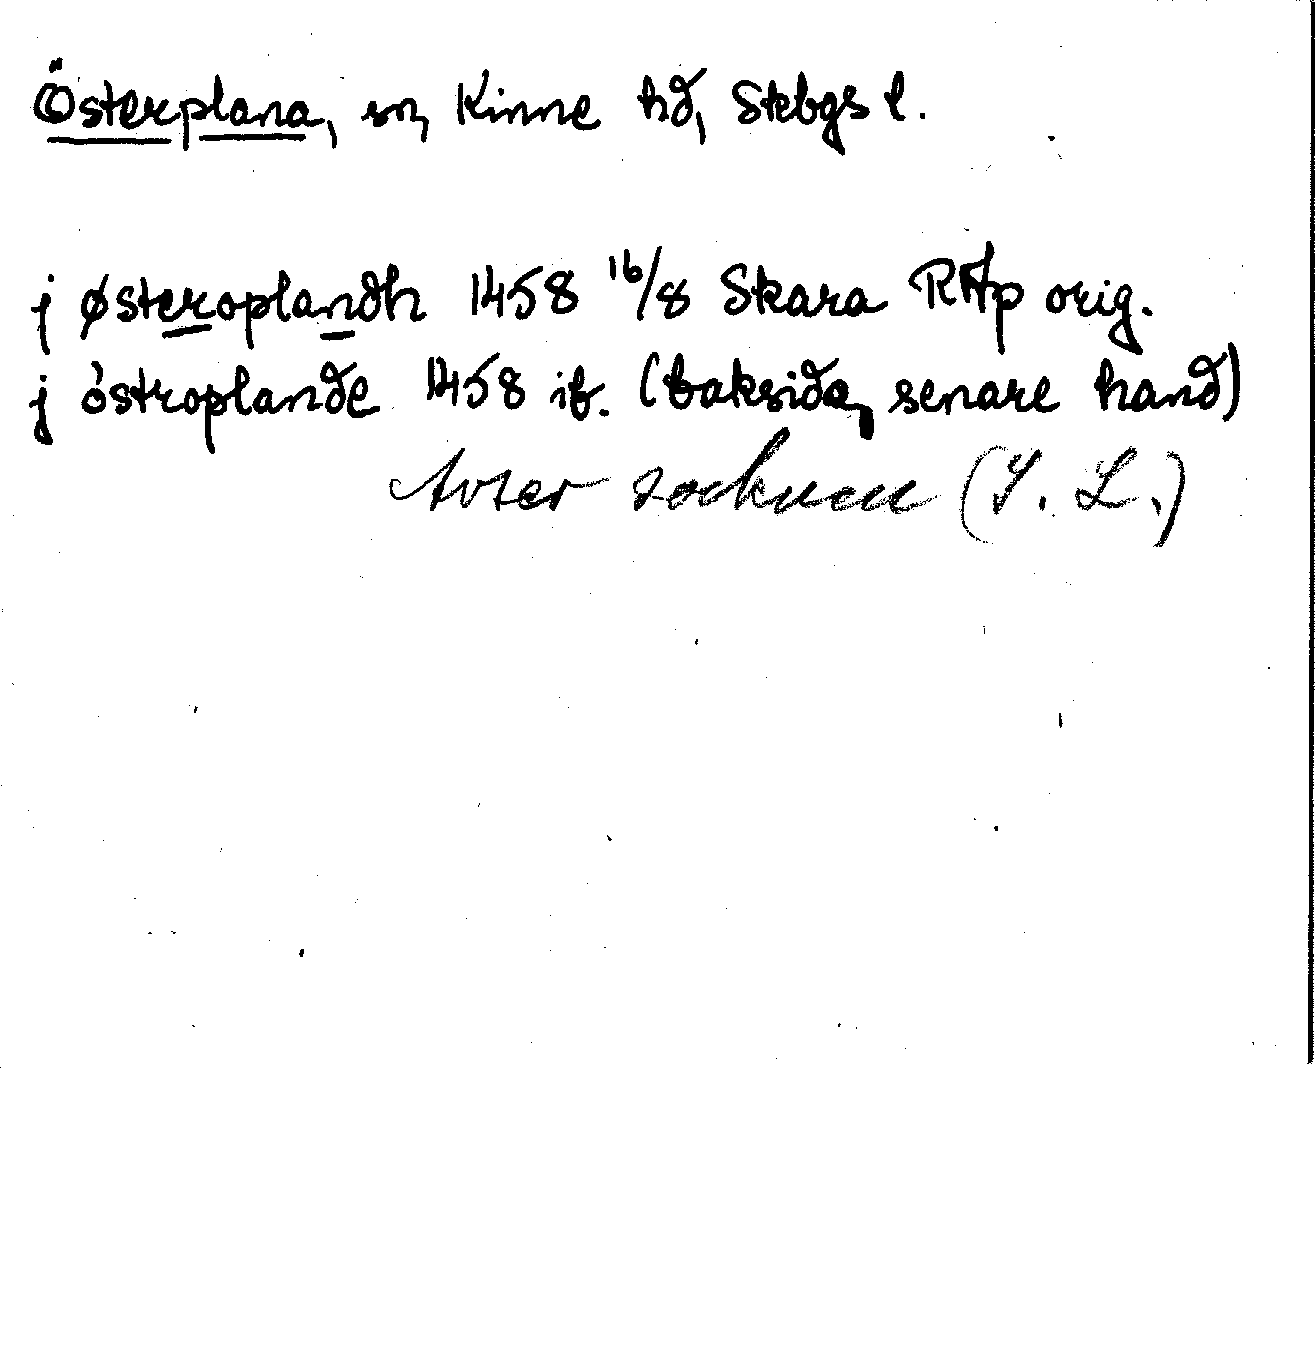 Österplana, sn, Kinne hd, Stkbgs l.
j østeroplandh 1458 16/8 Skara RAp orig.
j óstroplande 1458 ib. (baksida, senare hand)
Avser socknen (I. L.)